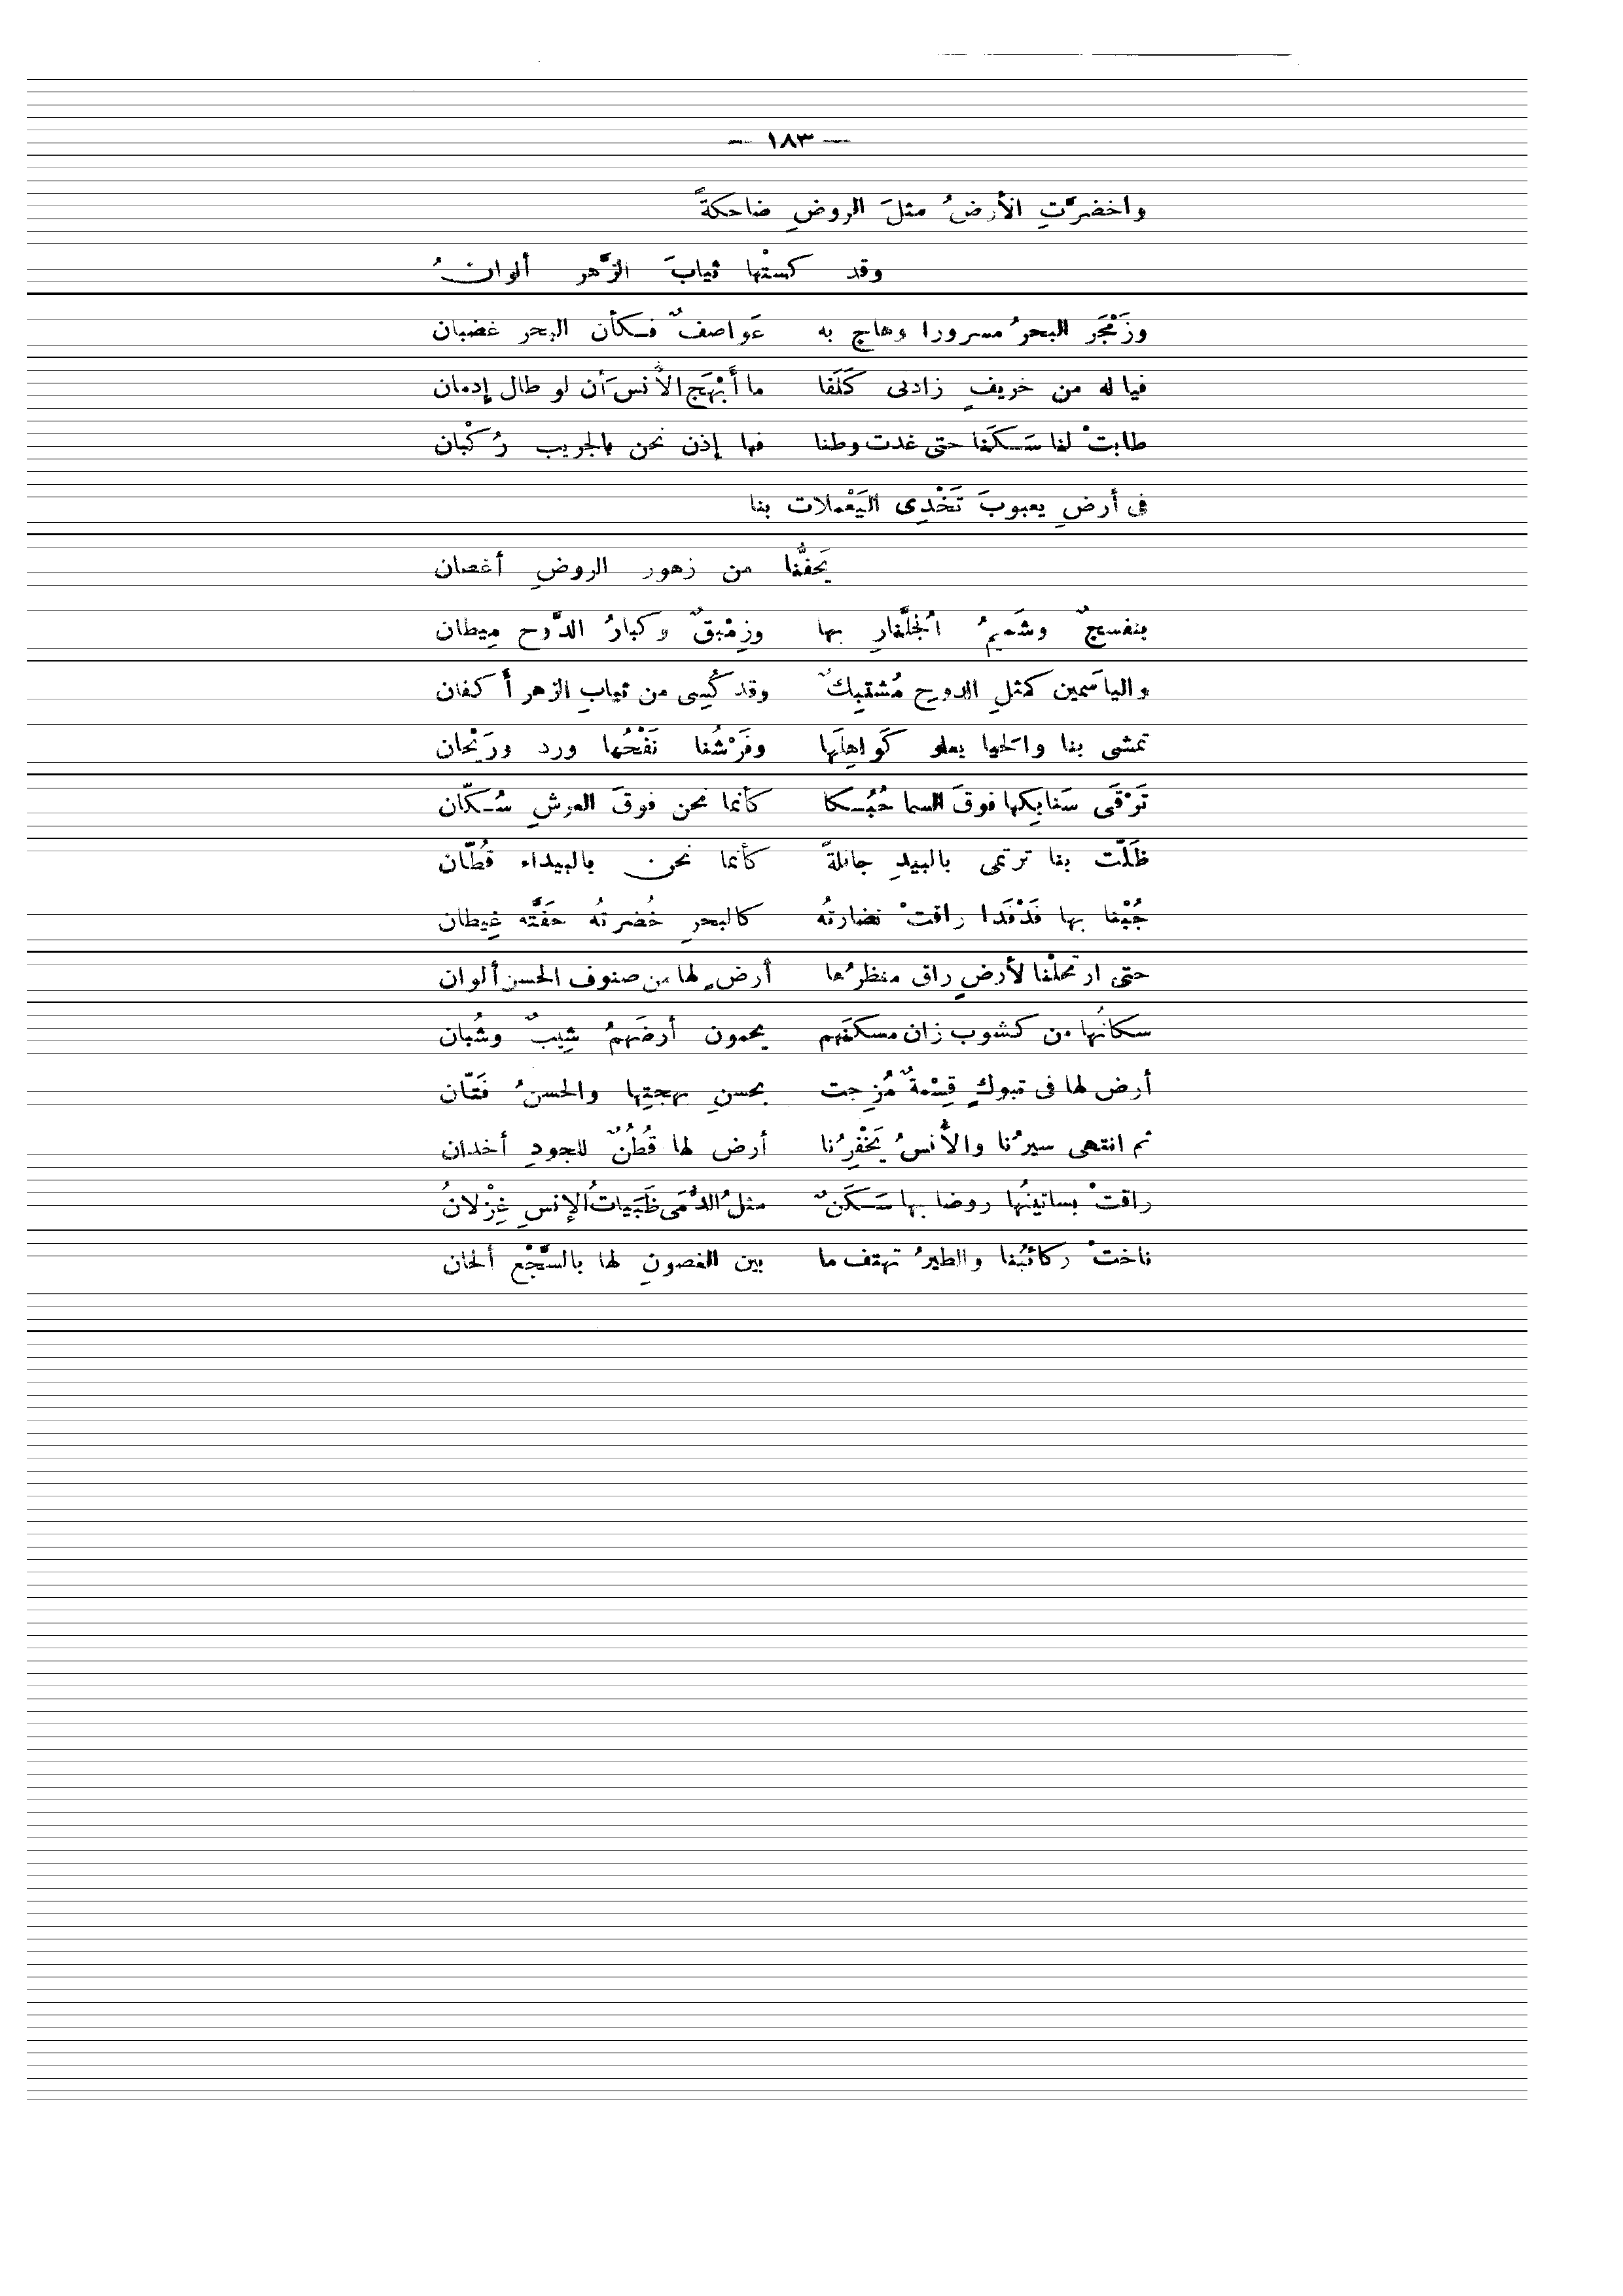 — ١٨٣ —
واخضرَّتِ الأرضُ مثلَ الروضِ ضاحكةً
وقد كستْها ثيابَ الزَّهر ألوانُ
وزَمْجَر البحرُ مسرورا وهاج به عَواصفٌ فكأن البحر غضبان
فياله من خريفٍ زادنى كَلَفا ما أَبْهَج الأُنسَ أن لو طال إدمان
طابتْ لنا سَكَنا حتى غدت وطنا فها إذن نحن بالجريب رُكْبان
فى أرضِ يعبوبَ تَخْدِى اليَعْملات بنا
يَحفُّنا من زهور الروضِ أغصان
بنفسجٌ وشَميمُ الجُلَّنارِ بها وزِنْبقٌ وكبارُ الدَّوح مِيطان
والياسَمين كمثلِ الدوحِ مُشتبِكٌ وقد كُسِى من ثيابِ الزهر أكفان
تمشى بنا والحَيا يعلو كَواهِلَها وفَرْشُنا نَفْحُها ورد ورَيْحان
تَرْقَى سَنابِكها فوقَ السما حُبُكا كأنما نحن فوقَ العرشِ سُكّان
ظَلّت بنا ترتمى بالبيدِ جائلةً كأنما نحن بالبيداء قُطّان
جُبْنا بها فَدْفَدا راقتْ نضارتهُ كالبحرِ خُضرتُه حَفَّتْه غِيطان
حتى ارتحلْنا لأرضٍ راق منظرُها أرضٍ لها من صنوف الحسن ألوان
سكانُها من كشوب زان مسكنَهم يحمون أرضَهمُ شِيبٌ وشُبان
أرض لها فى تبوكٍ قِسْمةٌ مُزِجت بحسنِ بهجتِها والحسنُ فَتّان
ثم انتهى سيرُنا والأُنسُ يَخْفِرُنا أرض لها قُطُنٌ للجودِ أخدان
راقتْ بساتينُها روضا بها سَكَنٌ مثلُ الدُّمَى ظَبَياتُ الإنسِ غِزْلانُ
ناختْ ركائبُنا والطيرُ تهتف ما بين الغصونِ لها بالسَّجْع ألحان